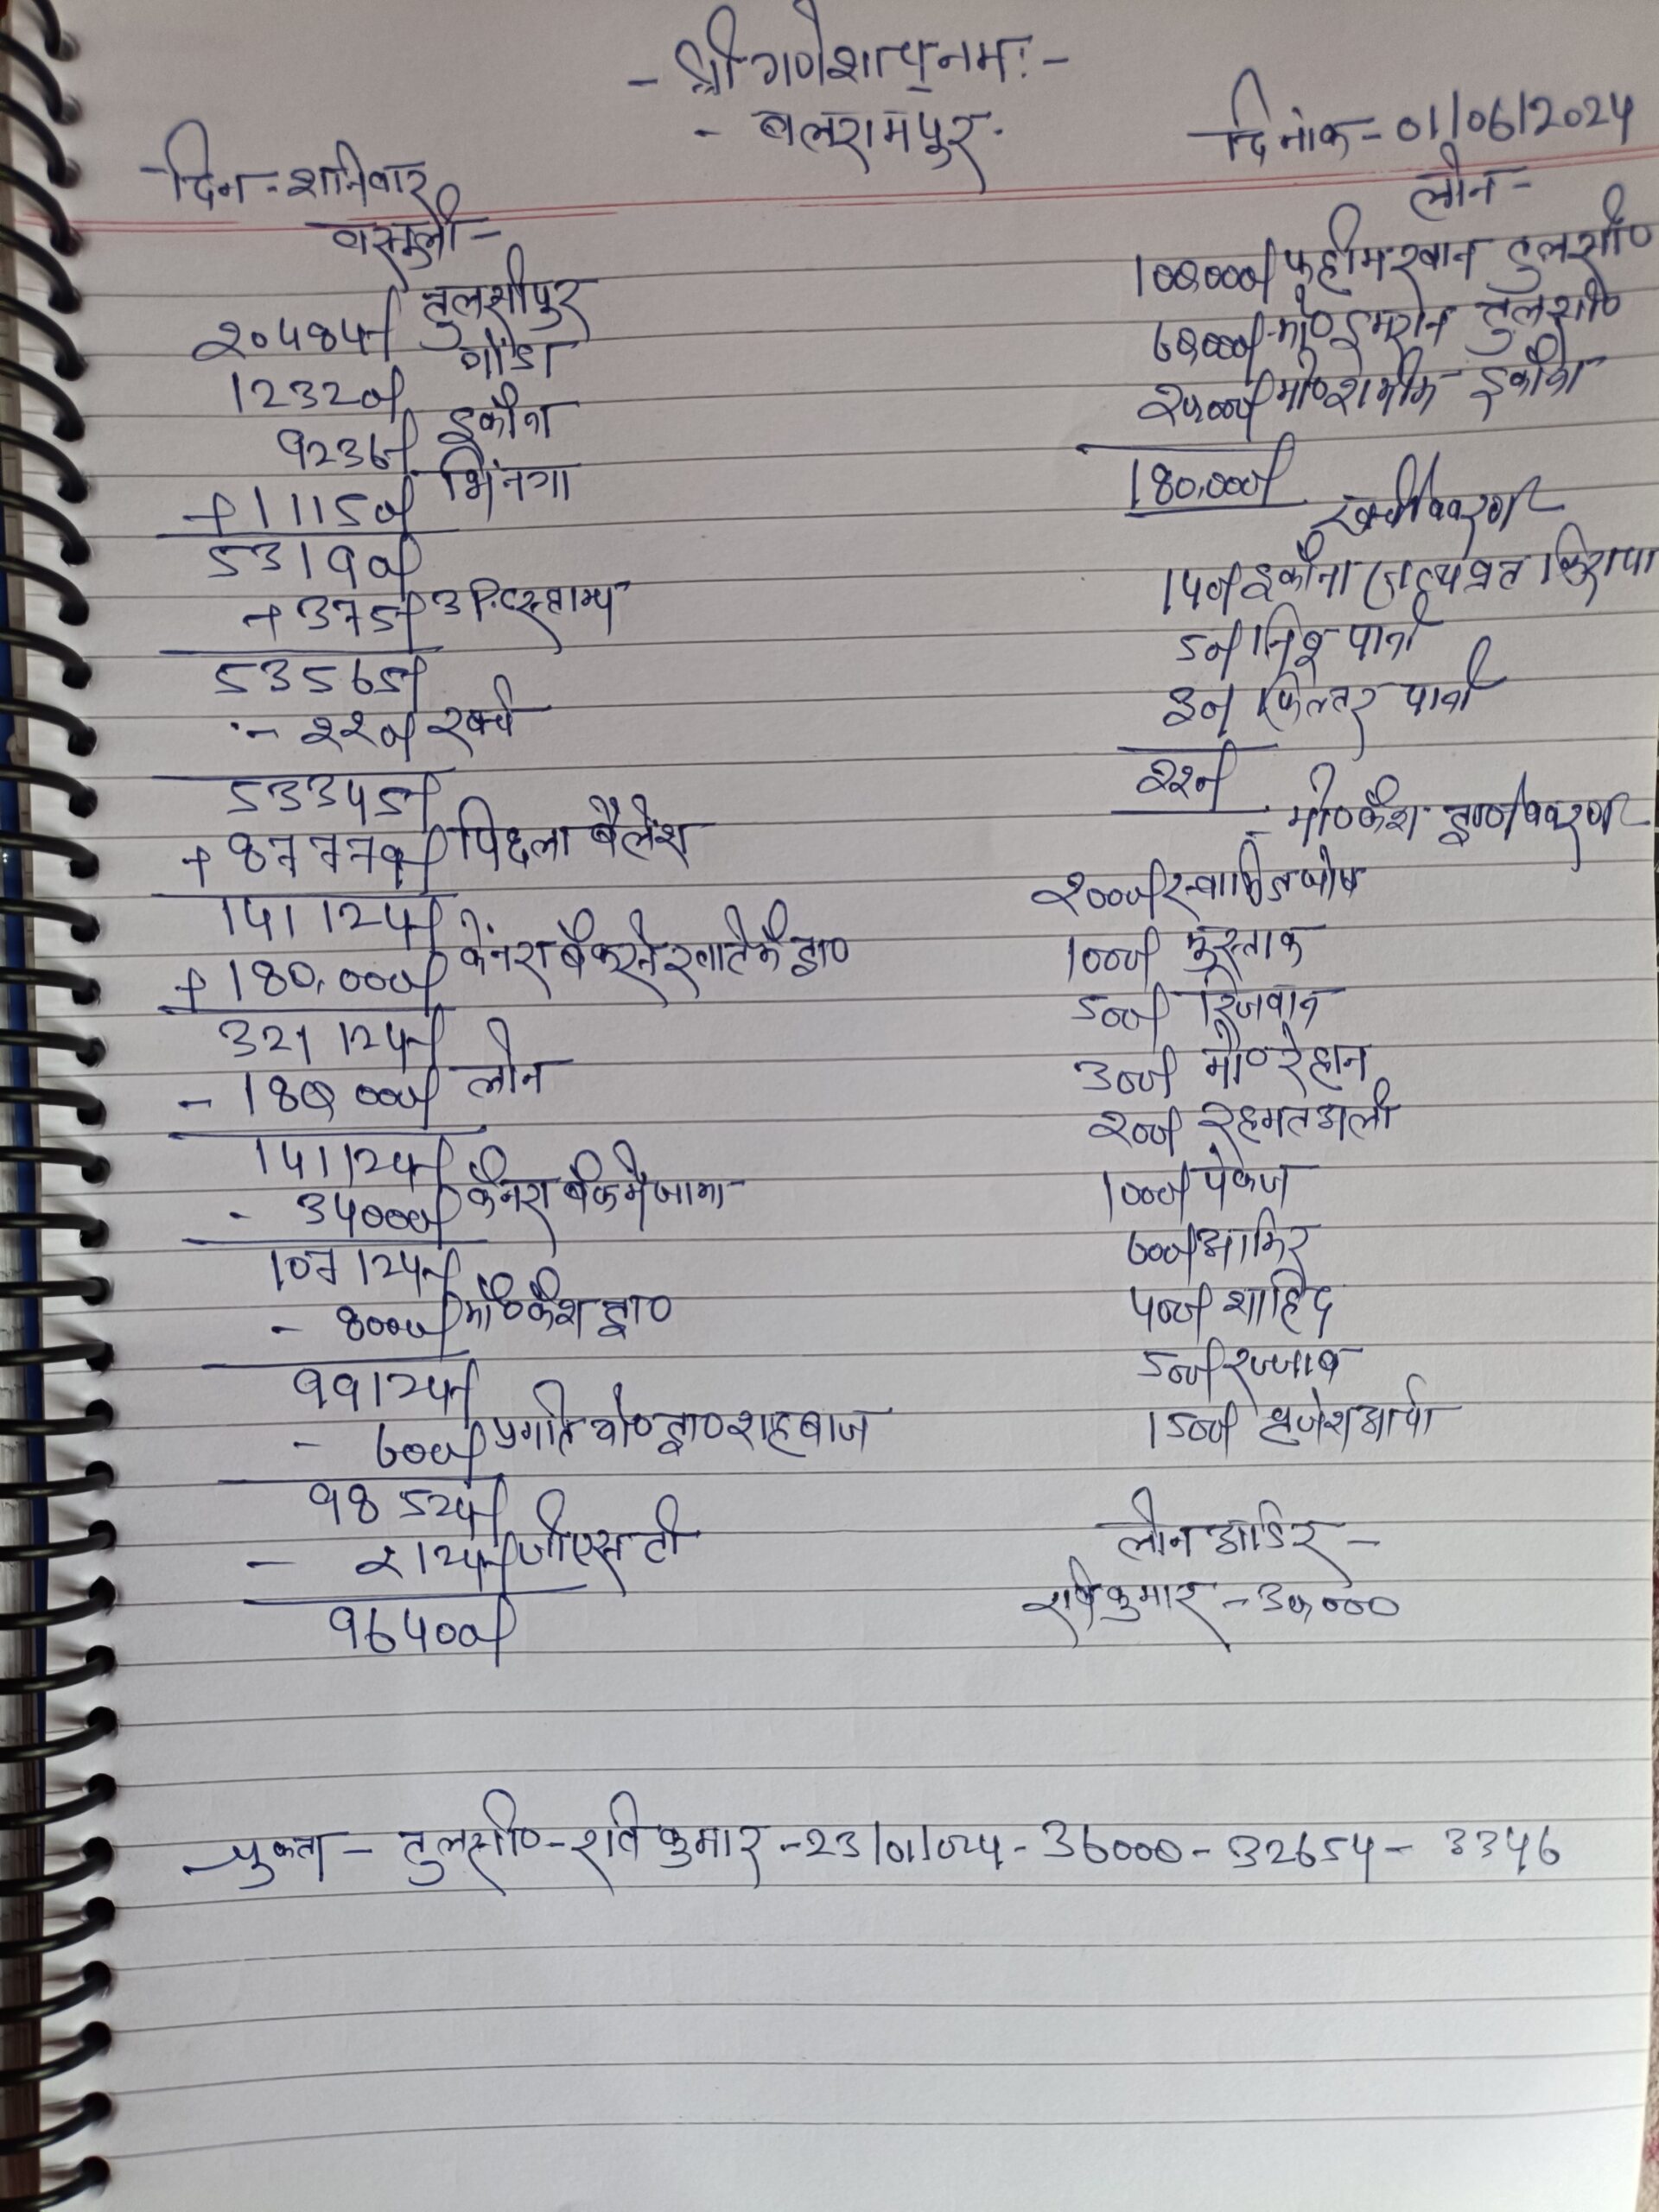 - श्री गणेशाय नमः -
- बलरामपुर -
दिनांक = 01/06/2024
दिन = शनिवार
वसूली -
20484/ तुलसीपुर
12320/ गोंडा
9236/ इकौना
+ 11150/ भिनगा
53190/
+ 375/ स्टाम्प
53565/
:- 220/ खर्च
53345/
+ 87779/ पिछला बैलेंश
141124/
+ 180,000/ केनरा बैंक से खाते के द्वा०
321124/
- 180,000/ लोन
141124/
- 34000/ केनरा बैंक मे जमा
107124/
- 8000/ मो० कैश द्वा०
99124/
- 600/ प्रगति यो० द्वा० शहबाज
98524/
- 2124/ जीएसटी
96400/
लोन -
100,000/ फहीम खान तुलसी०
60,000/ मो० इमरान तुलसी०
20,000/ मो० शमीम इकौना
180,000/
खर्च विवरण
140/ इकौना किराया
50/ पानी
30/ फिल्टर पानी
220/
- मो० कैश द्वा० विवरण
2000/
1000/ मुस्ताक
500/ रिजवान
300/ मो० रेहान
200/ रहमत अली
1000/ पंकज
600/ आमिर
400/ शाहिद
500/ रज्जाब
1500/ ब्रजेश आर्या
लोन आर्डर -
रवि कुमार - 30,000
चुकता - तुलसी० - रवि कुमार - 23/01/024 - 36000 - 32654 - 3346